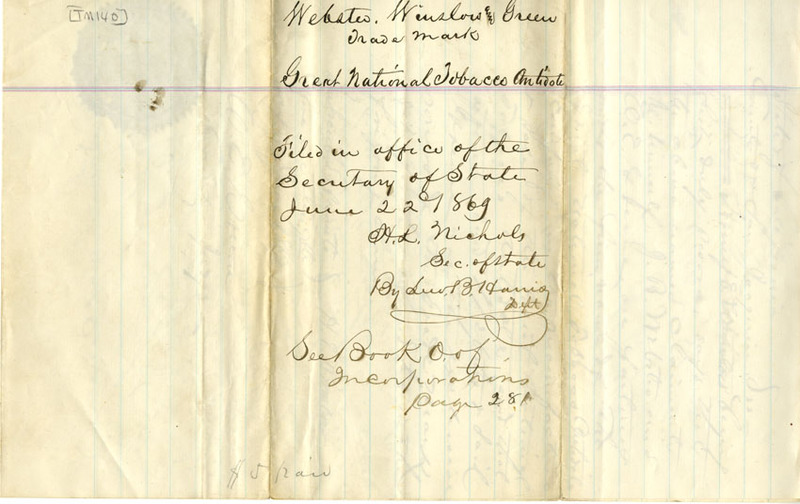 [TM140]
Webster, Winslow & Green
Trade Mark
Great National Tobacco Antidote
Filed in office of the
Secretary of State
June 22d 1869
H.L. Nichols
Sec. of State
By Lew. B. Harris
Dept
See Book O. of
Incorporations
page 281
$5 paid